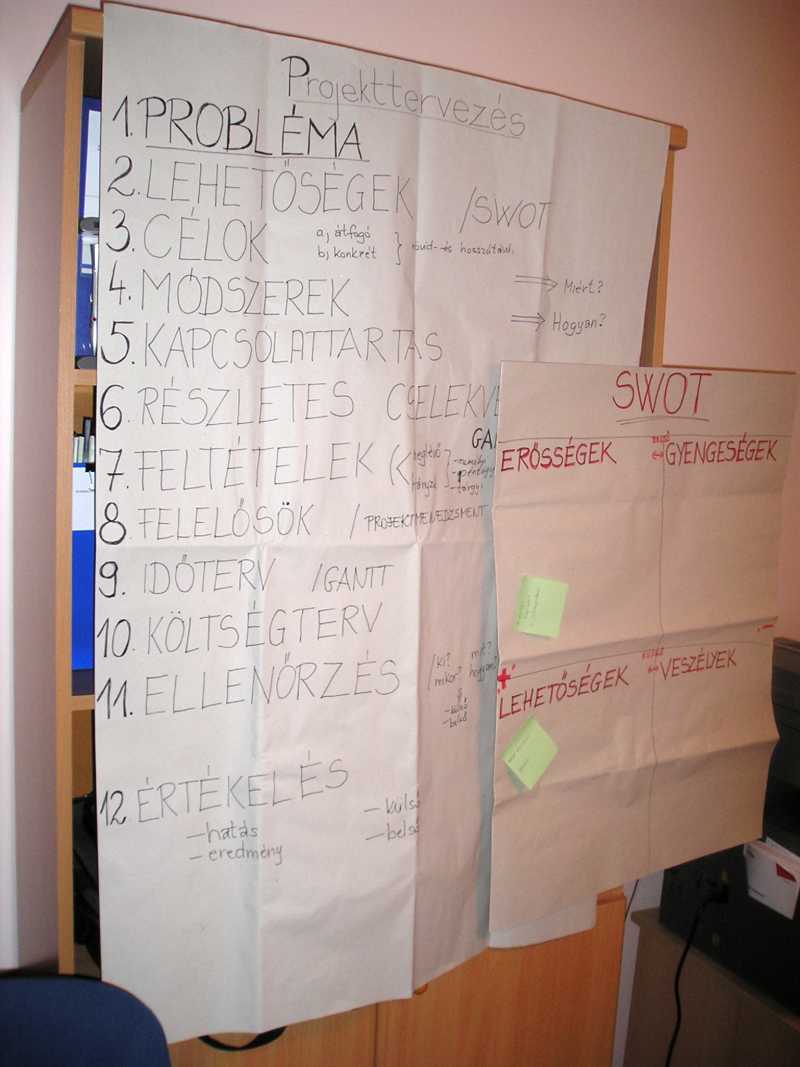 Projekttervezés
1. PROBLÉMA
2. LEHETŐSÉGEK /SWOT
3. CÉLOK a, átfogó
b, konkrét } rövid- és hosszútávú
4. MÓDSZEREK ⇒ Miért?
⇒ Hogyan?
5. KAPCSOLATTARTÁS
6. RÉSZLETES CSELEKVÉ
GA
7. FELTÉTELEK (
8. FELELŐSÖK / PROJEKTMENEDZSMENT
9. IDŐTERV /GANTT
10. KÖLTSÉGTERV
11. ELLENŐRZÉS /ki? mit?
mikor? hogyan?
- külső
- belső
12 ÉRTÉKELÉS
- hatás - külső
- eredmény - belső
SWOT
ERŐSSÉGEK GYENGESÉGEK
+ -
LEHETŐSÉGEK VESZÉLYEK